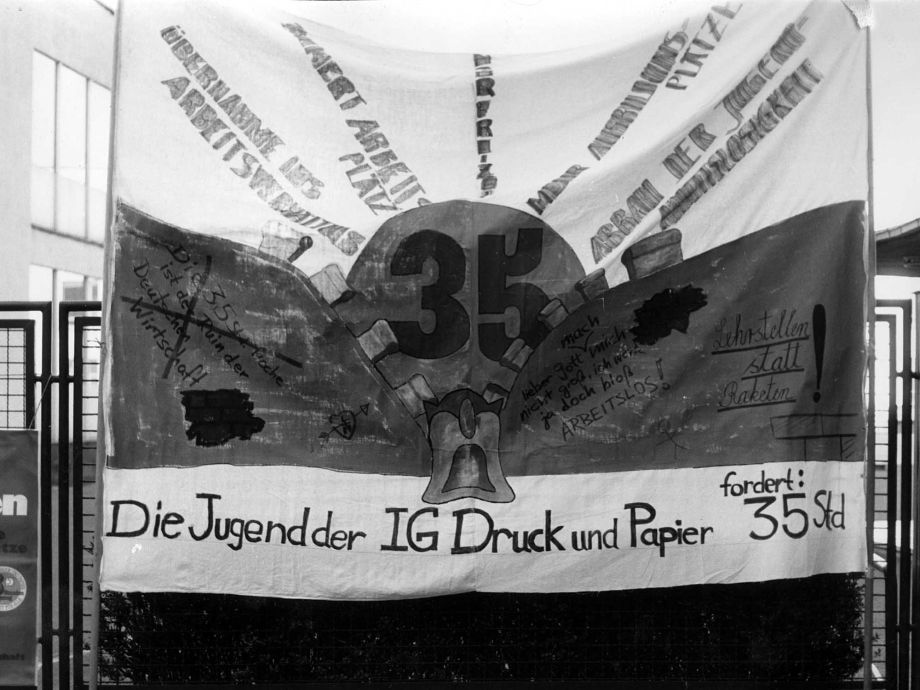 ÜBERNAHME INS
ARBEITSVERHÄLTNIS
ARBEITS
PLATZ
MEHR FREIZEIT
MEHR AUSBILDUNGS-
PLÄTZE
ABBAU DER JUGEND-
ARBEITSLOSIGKEIT
35
Die 35 Stundenwoche
ist der Ruin der
Deutschen
Wirtschaft
lieber gott mach
mich
nicht groß, ich werde
ja doch bloß
ARBEITSLOS!
Lehrstellen
statt
Raketen!
Die Jugend der IG Druck und Papier
fordert:
35 Std
en